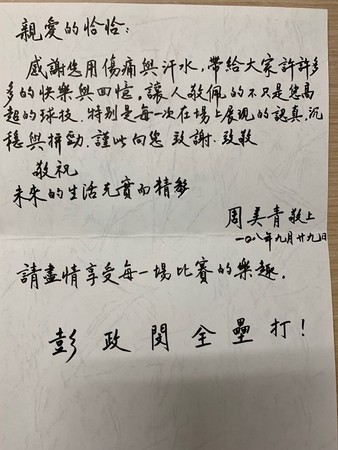 親愛的恰恰：
感謝您用傷痛與汗水，帶給大家許許多
多的快樂與回憶。讓人敬佩的不只是您高
超的球技、特別是每一次在場上展現的認真、沉
穩與拼勁、謹此向您 致謝、致敬
敬祝
未來的生活充實而精彩
周美青 敬上
一０八年九月廿九日
請盡情享受每一場比賽的樂趣。
彭政閔全壘打！